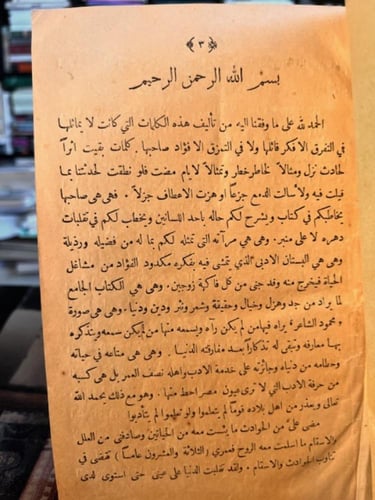 ﴿ ٣ ﴾
بسم الله الرحمن الرحيم
الحمد لله على ما وفقنا اليه من تأليف هذه الكلمات التي كانت لا يماثلها
في التفرق الا فكر قائلها ولا في التمزق الا فؤاد صاحبها . كلمات بقيت اثراً
لحادث نزل ومثالاً لخاطر خطر وتمثالاً لايام مضت فلو نطقت لحدثتنا بما
قيلت فيه ولأسالت الدمع جزعاً او هزت الاعطاف جزلاً . فهي هي صاحبها
يخاطبكم في كتاب ويشرح لكم حاله باحد اللسانين ويخطب لكم في تقلبات
دهره لا على منبر . وهي هي مرآته التي تمثله لكم بما له من فضيلة ورذيلة
وهي هي البستان الادبي الذي يتمشى فيه بفكره مكدود الفؤاد من مشاغل
الحياة فيخرج منه وقد جنى من كل فاكهة زوجين . وهي هي الكتاب الجامع
لما يراد من جد وهزل وخيال وحقيقة وشعر ونثر ودين ودنيا . وهي هي صورة
« محمود الشاعر » يراه فيها من لم يكن رآه ويسمعه منها من لم يكن سمعه ويتذكره
بها معارفه وتبقى له تذكاراً بعد مفارقته الدنيا . وهي هي متاعه في حياته
وحطامه من دنياه وجائزته على خدمة الادب واهله نصف العمر بل هي كسبه
من حرفة الادب التي لا ترى عيون مصر احط منها . وهو مع ذلك يحمد الله
تعالى ويعذر من اهل بلاده قوماً لم يتعلموا ولو تعلموا لم يتأدبوا
مضى عليّ من الحوادث ما يئست معه من الحياتين وصادفني من العلل
والاسقام ما اسلمت معه الروح فعمري ( الثلاثة والعشرون عاماً ) تقضى في
تناوب الحوادث والاسقام . ولقد تغلبت الدنيا على عيني حتى استوى لدى